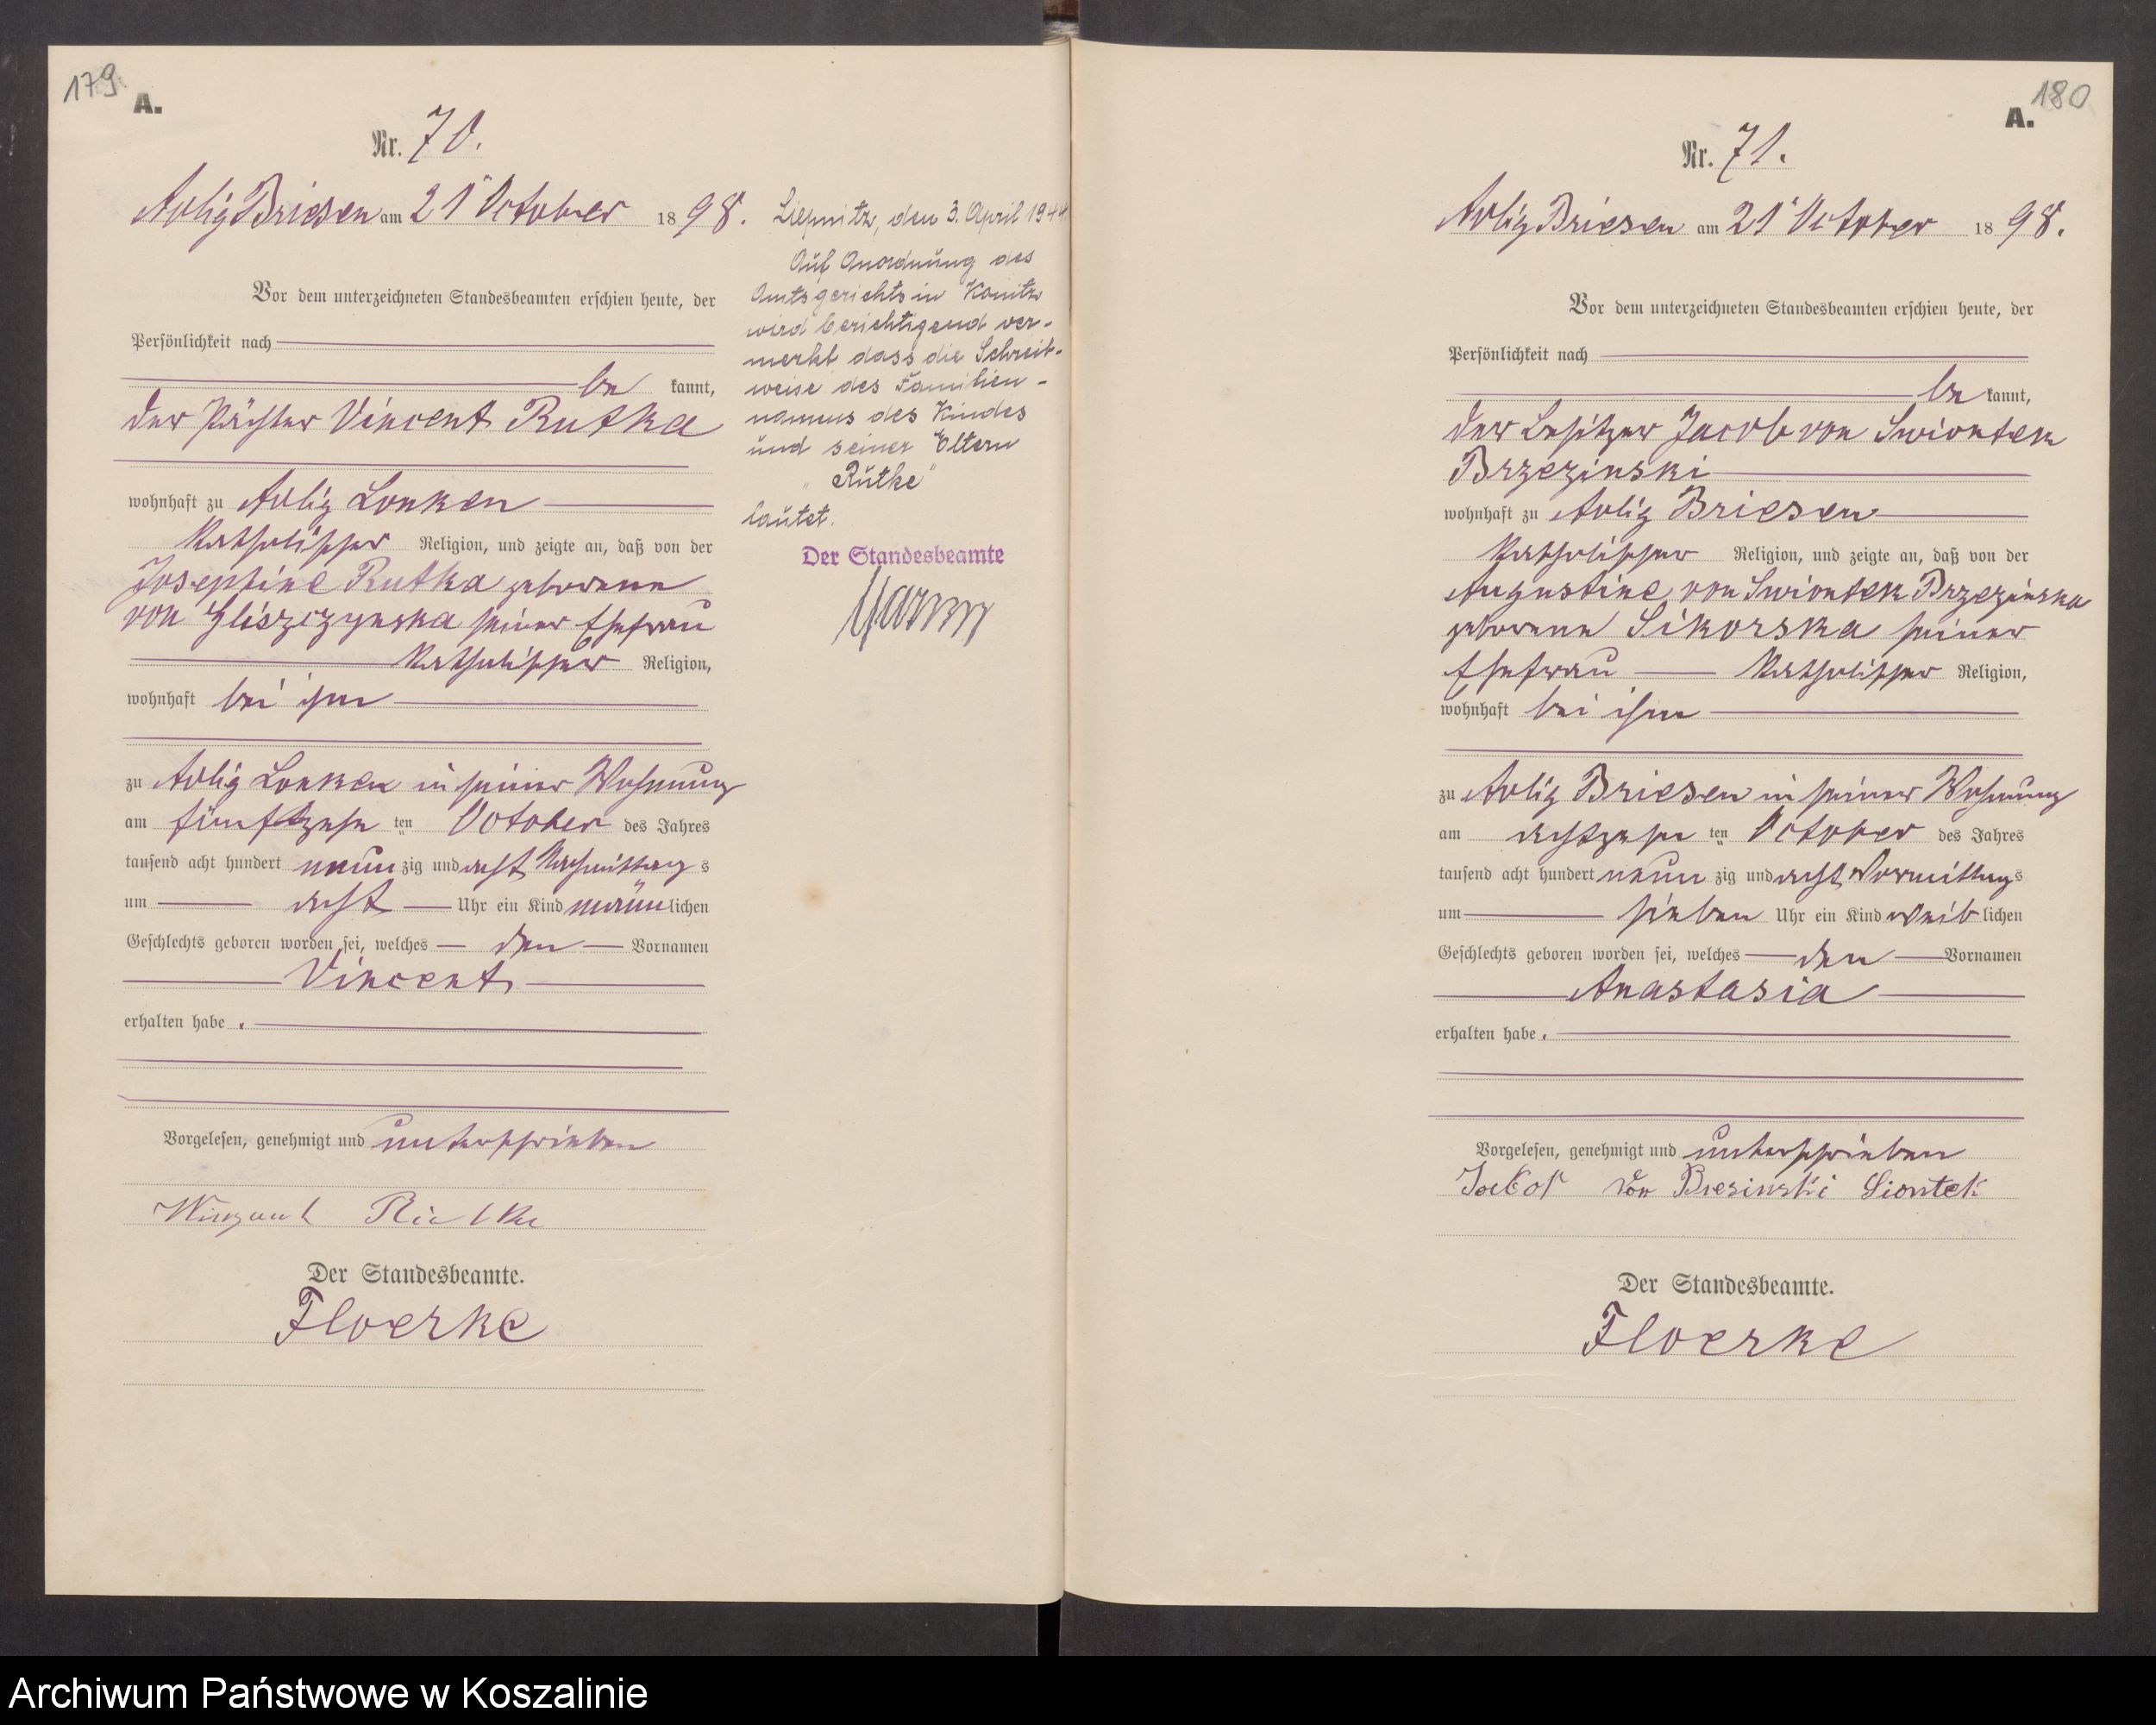 179
A.
Nr. 70.
Adlig Briesen am 21 October 1898.
Vor dem unterzeichneten Standesbeamten erschien heute, der
Persönlichkeit nach
be kannt,
der Pächter Vincent Rutka
wohnhaft zu Adlig Lonken
katholischer Religion, und zeigte an, daß von der
Josephine Rutka geborene
von Gliszczynska seiner Ehefrau
katholischer Religion,
wohnhaft bei ihm
zu Adlig Lonken in seiner Wohnung
am fünfzehn ten October des Jahres
tausend acht hundert neun zig und acht Nachmittag s
um acht Uhr ein Kind männlichen
Geschlechts geboren worden sei, welches den Vornamen
Vincent
erhalten habe.
Vorgelesen, genehmigt und unterschrieben
Der Standesbeamte.
Floerke
Liepnitz, den 3. April 194
Auf Anordnung des
Amtsgerichts in Konitz
wird berichtigend ver-
merkt dass die Schreib-
weise des Familien-
namens des Kindes
und seiner Eltern
"Rutke"
lautet.
Der Standesbeamte
180
A.
Nr. 71.
Adlig Briesen am 21 October 1898.
Vor dem unterzeichneten Standesbeamten erschien heute, der
Persönlichkeit nach
be kannt,
der Besitzer Jacob von Swiontek
Brzezinski
wohnhaft zu Adlig Briesen
katholischer Religion, und zeigte an, daß von der
Augustine von Swiontek Brzezinska
geborene Sikorska seiner
Ehefrau katholischer Religion,
wohnhaft bei ihm
zu Adlig Briesen in seiner Wohnung
am achtzehn ten October des Jahres
tausend acht hundert neun zig und acht Vormittags
um sieben Uhr ein Kind weiblichen
Geschlechts geboren worden sei, welches den Vornamen
Anastasia
erhalten habe.
Vorgelesen, genehmigt und unterschrieben
von Bresinski Siontek
Der Standesbeamte.
Floerke
Archiwum Państwowe w Koszalinie